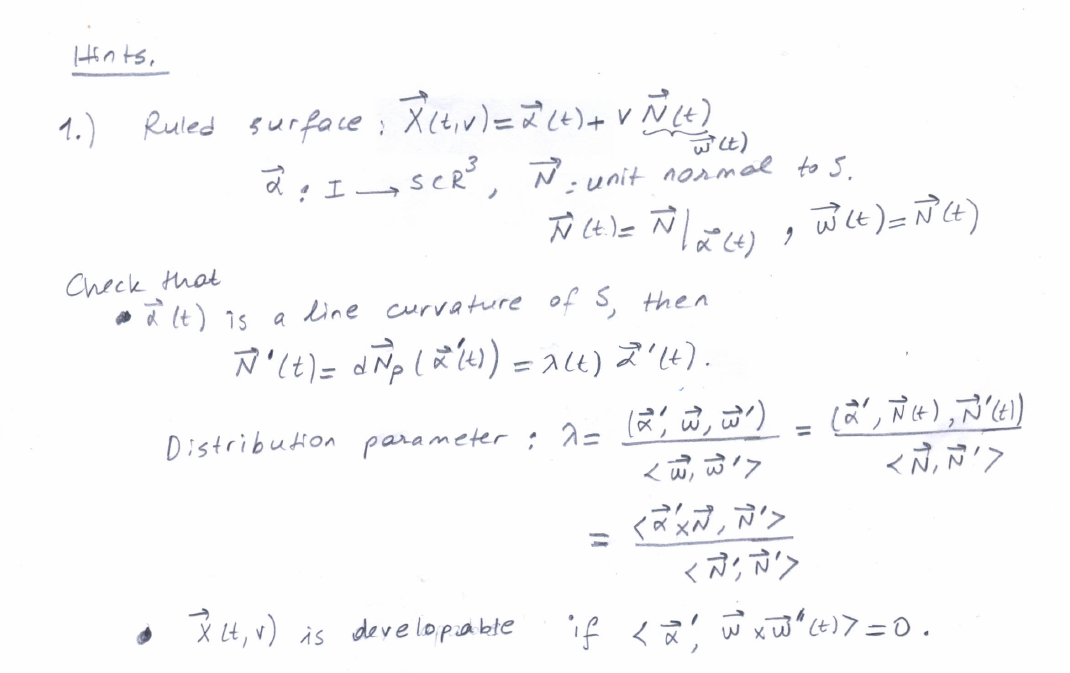 Hints.
1.) Ruled surface : X⃗(t,v) = α⃗(t) + v N⃗(t)
w⃗(t)
α⃗ : I → S ⊂ R³, N⃗ : unit normal to S.
N⃗(t) = N⃗|α⃗(t) , w⃗(t) = N⃗(t)
Check that
• α⃗(t) is a line curvature of S, then
N⃗'(t) = dN⃗p(α⃗'(t)) = λ(t) α⃗'(t).
Distribution parameter : λ = (α⃗', w⃗, w⃗') / <w⃗, w⃗'> = (α⃗', N⃗(t), N⃗'(t)) / <N⃗, N⃗'>
= <α⃗'×N⃗, N⃗'> / <N⃗', N⃗'>
• X⃗(t,v) is developable if <α⃗', w⃗×w⃗'(t)> = 0.